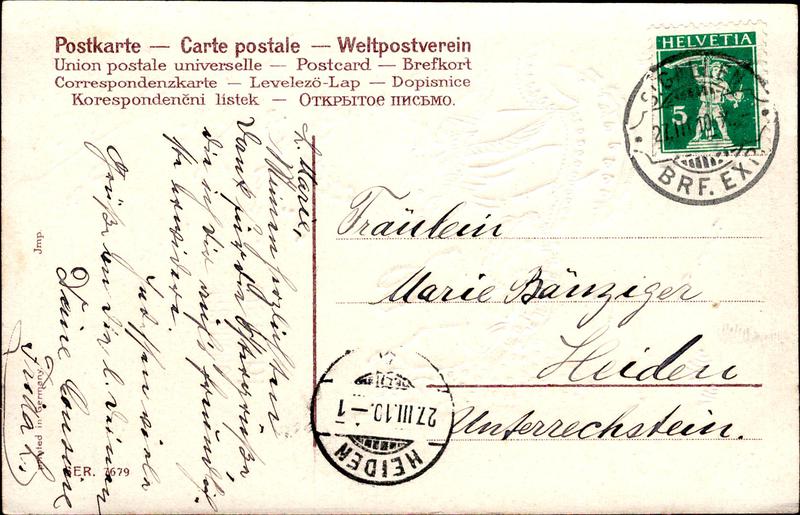 Postkarte — Carte postale — Weltpostverein
Union postale universelle — Postcard — Brefkort
Correspondenzkarte — Levelező-Lap — Dopisnice
Korespondenční listek — Открытое письмо.
HELVETIA
5
ST. GALLEN
27.III.10
BRF. EXP.
L. Marie,
Meinen herzlichsten
Dank für die Ostergrüße
die ich dir aufs freundl.
ste erwidere.
Indessen viele
Grüße an die l. Deinen
Deine Cousine
Frieda
Fräulein
Marie Bänziger
Heiden
Unterrechstein.
27.III.10.-1
HEIDEN
Jmp.
Printed in Germany
SER. 7679